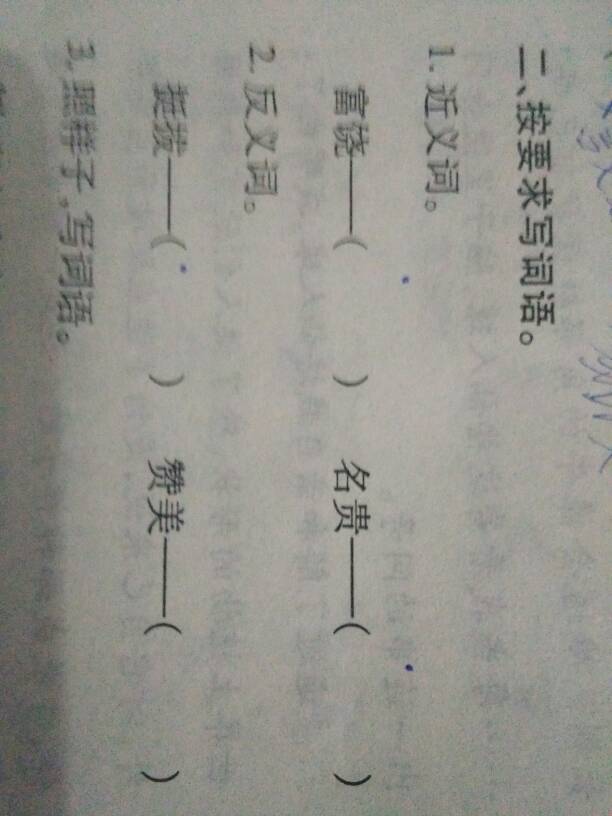 二、按要求写词语。
1. 近义词。
富饶——(　　　) 名贵——(　　　)
2. 反义词。
挺拔——(　　　) 赞美——(　　　)
3. 照样子,写词语。